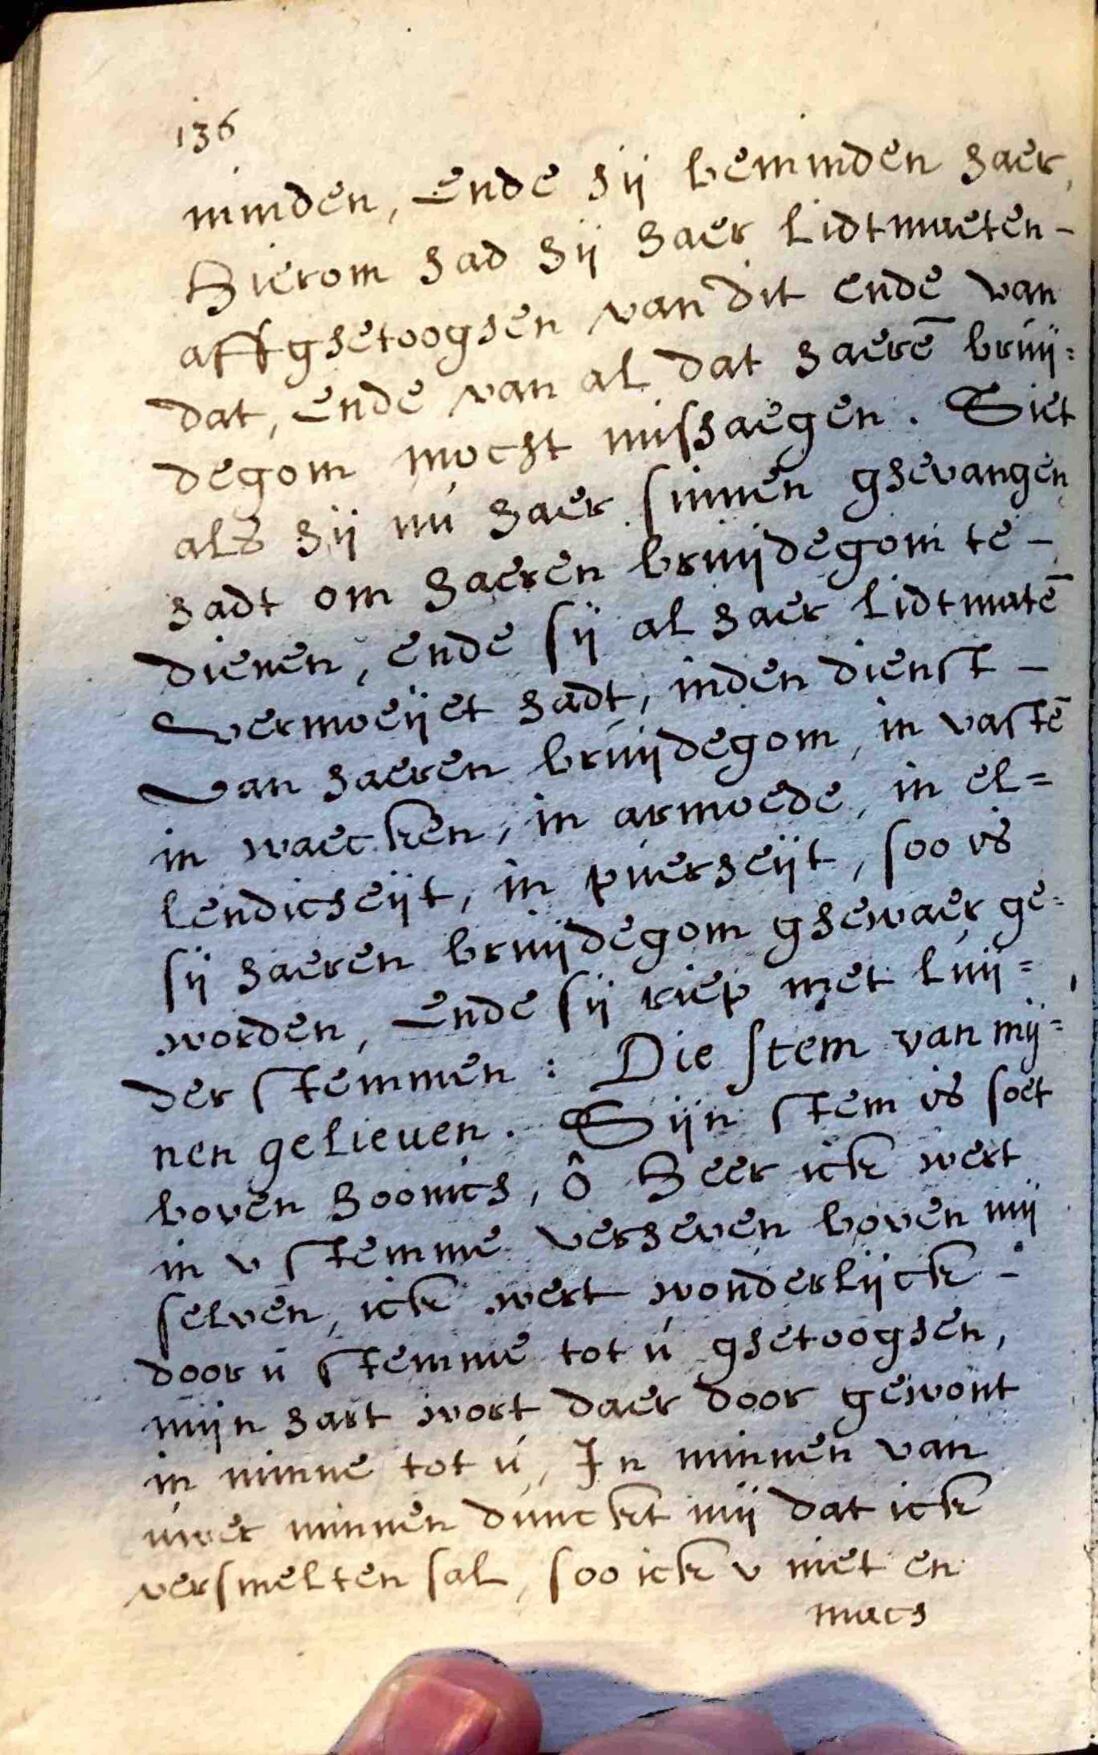 136
minden, Ende hij beminden haer,
Hierom had hij haer lidtmaeten -
affghetooghen van dit ende van
dat, Ende van al dat haerē bruij=
degom mocht mishaegen. Siet
als hij nú haer sinnen ghevangen
hadt om haeren bruijdegom te -
dienen, ende sij al haer lidtmatē
vermoeijet hadt, inden dienst -
van haeren bruijdegom, in vastē
in waecken, in armoede, in el=
lendicheijt, in puerheijt, soo is
sij haeren bruijdegom ghewaer ge=
worden, Ende sij riep met luij=
der stemmen : Die stem van mij=
nen gelieuen. Sijn stem is soet
boven hoonich, ô Heer ick wert
in v stemme verheven boven mij
selven, ick wert wonderlijck -
door ú stemme tot ú ghetooghen,
mijn hart wort daer door gewont
in minne tot ú, In minnen van
úwer minnen dúnckt mij dat ick
versmelten sal, soo ick v niet en
mach